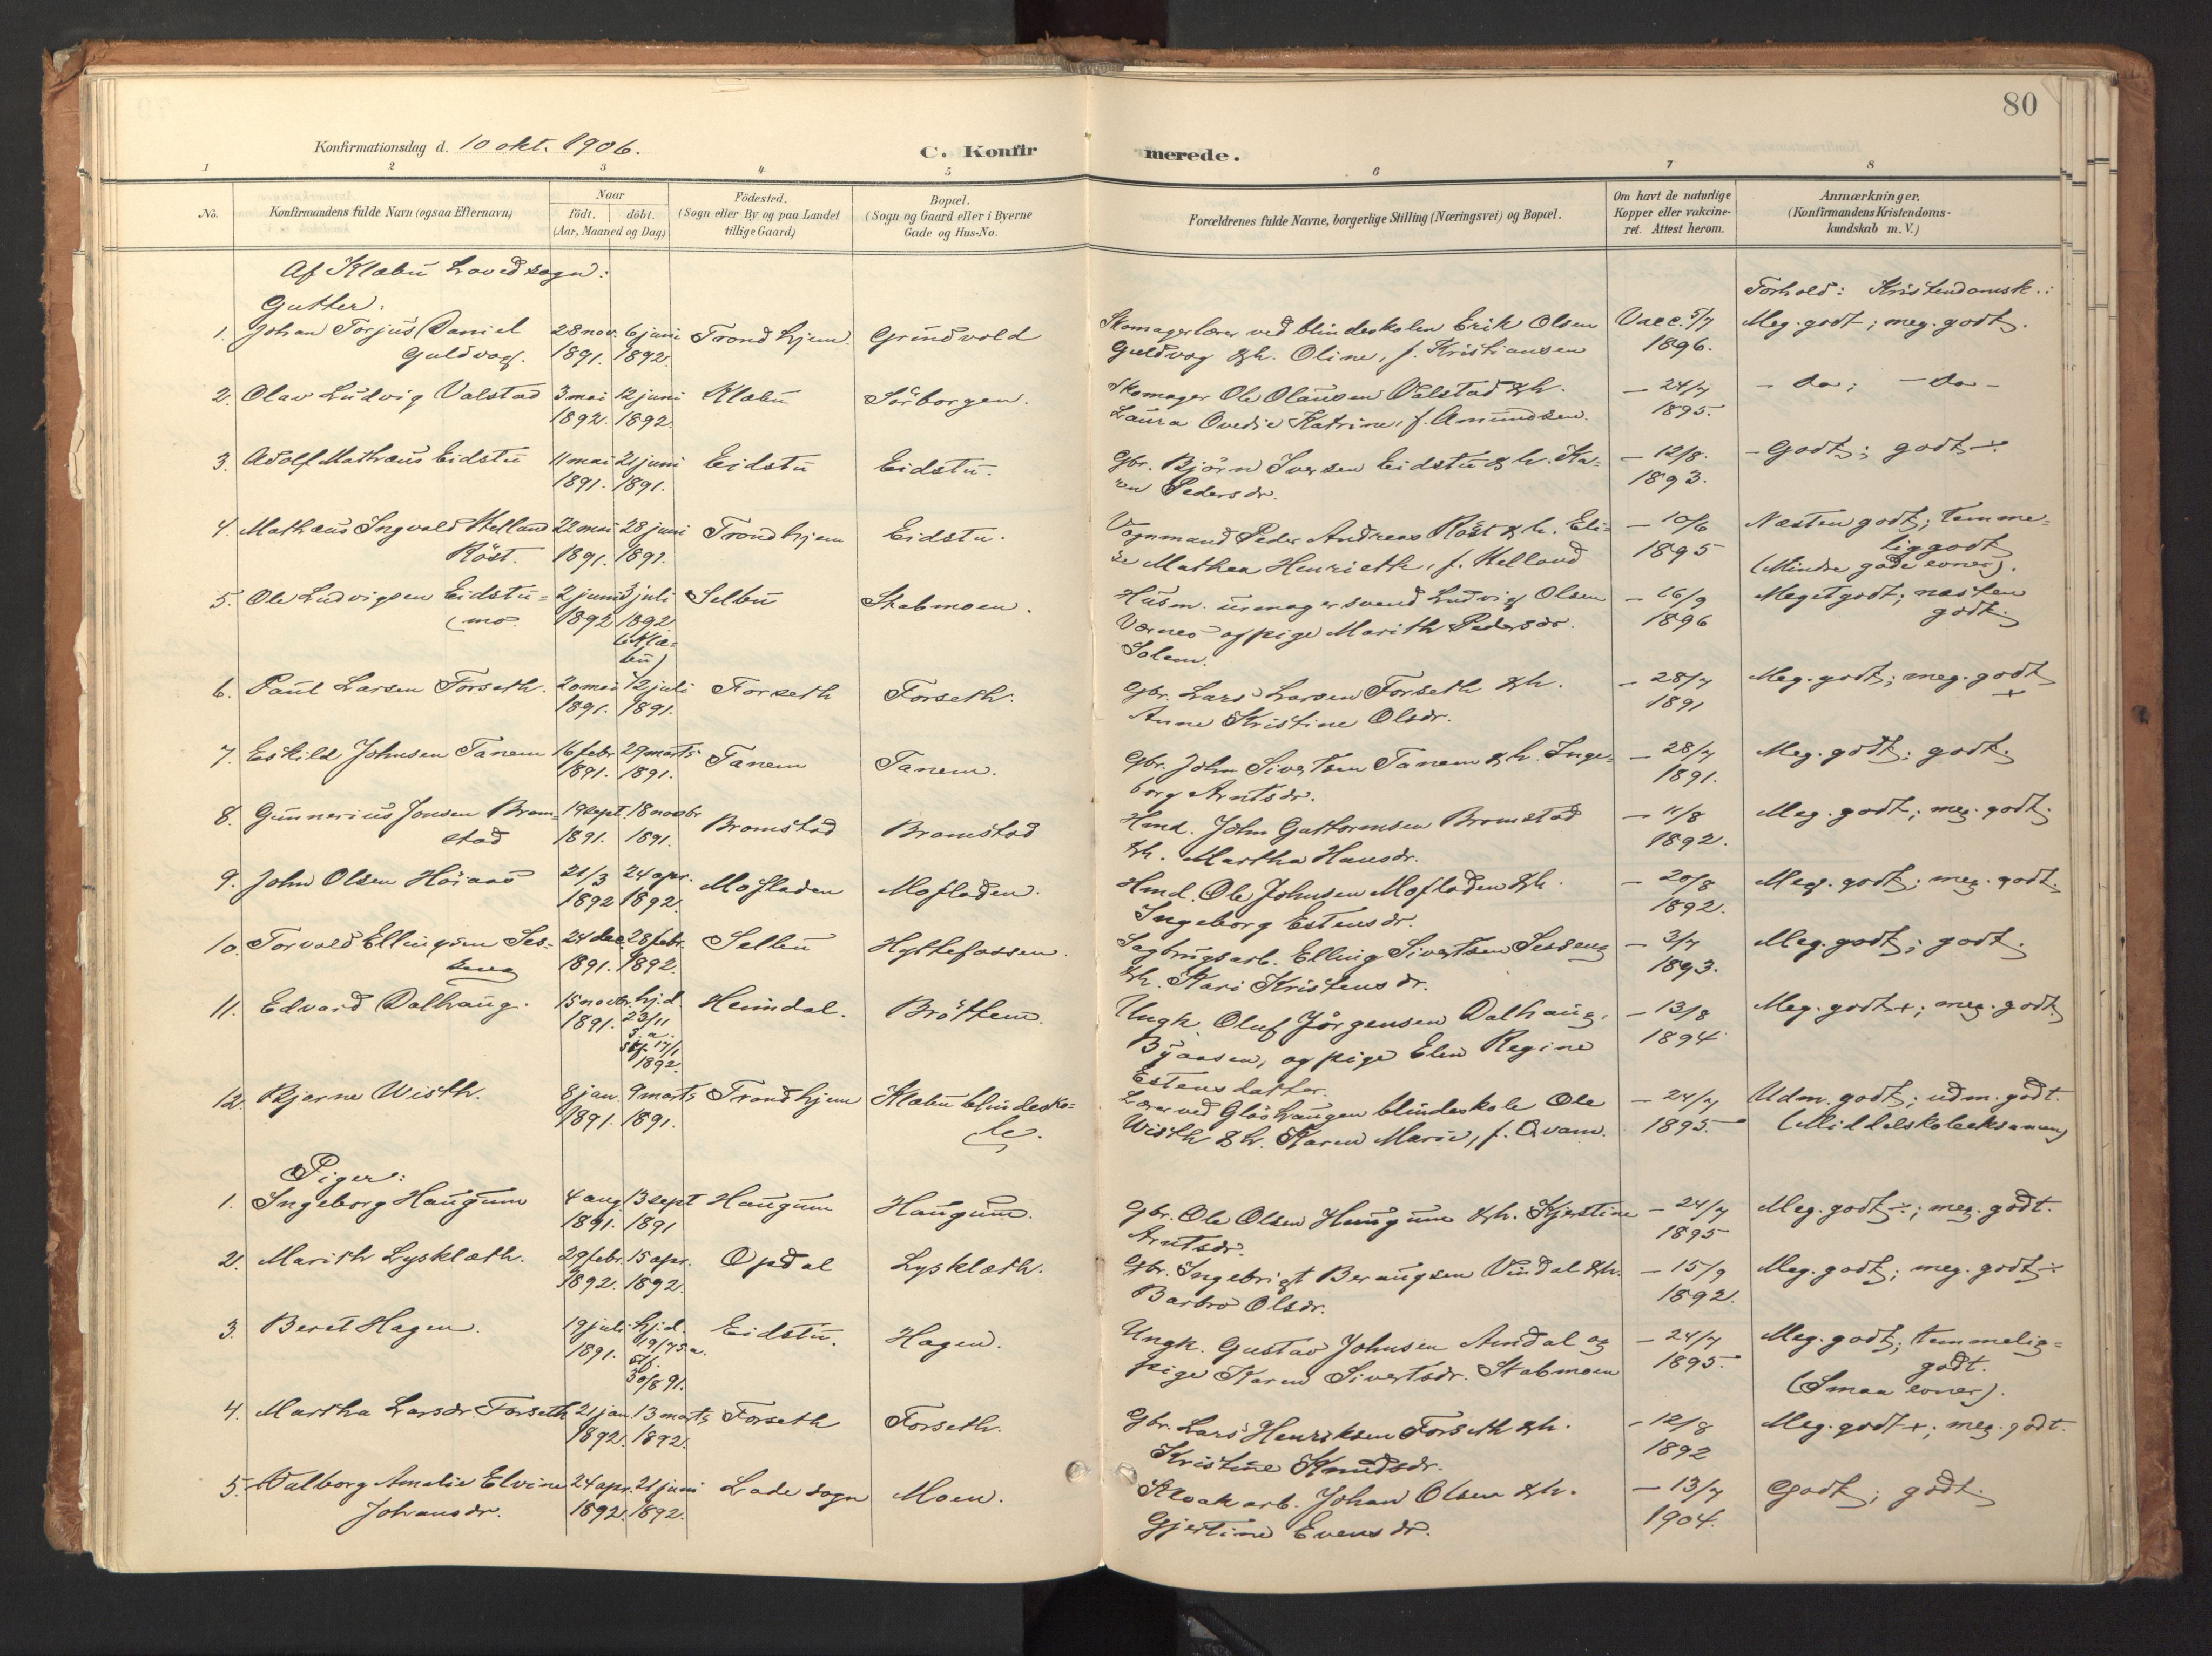 80
Konfirmationsdag d. 10 okt. 1906.
C. Konfirmerede.
1 2 3 4 5 6 7 8
No.
Konfirmandens fulde Navn (ogsaa Efternavn)
Naar
födt. döbt.
(Aar, Maaned og Dag)
Födested.
(Sogn eller By og paa Landet
tillige Gaard)
Bopæl.
(Sogn og Gaard eller i Byerne
Gade og Hus-No.
Forældrenes fulde Navne, borgerlige Stilling (Næringsvei) og Bopæl.
Om havt de naturlige
Kopper eller vakcine-
ret. Attest herom.
Anmærkninger.
(Konfirmandens Kristendoms-
kundskab m. V.)
Af Klæbu Hovedsogn:
Gutter:
Forhold: Kristendomsk.:
1. Johan Torjus Daniel 28 nov. 6 juni Trondhjem. Grundvold Skomagerlærer ved blindeskolen Erik Olsen Vacc. 5/7 Meg. godt; meg. godt.
Guldvog. 1891. 1892. Guldvog & h. Oline, f. Kristiansen 1896.
2. Olav Ludvig Valstad 3 mai 12 juni Klæbu Sörborgen. Skomager Ole Olausen Valstad & h. – 24/7 – do; – do –
1892. 1892. Laura Ovedie Katrine, f. Amundsen. 1895.
3. Adolf Mathæus Eidstu 11 mai 21 juni Eidstu Eidstu. Gbr. Björn Iversen Eidstu & h. Ka- – 12/8. – Godt; godt ÷
1891. 1891. ren Pedersdr. 1893.
4. Mathæus Ingvald Helland 22 mai 28 juni Trondhjem Eidstu. Vognmand Peder Andreas Röst & h. Eli- – 10/6 Næsten godt; temme-
Röst. 1891. 1891. se Mathea Henriette, f. Helland 1895 lig godt
(Mindre gode evner).
5. Ole Ludvigsen Eidstu- 2 juni 3 juli Selbu Stabmoen. Husm. urmagersvend Ludvig Olsen – 16/9 Meget godt; næsten
mo. 1892 1892. Værnes og pige Marith Pedersdr. 1896 godt.
(i Klæ-
bu) Solem.
6. Paul Larsen Forseth. 20 mai 12 juli Forseth Forseth. Gbr. Lars Larsen Forseth & h. – 28/7 Meg. godt; meg. godt
1891. 1891. Anne Kristine Olsdr. 1891 +
7. Eskild Johnsen Tanem 16 febr. 29 marts Tanem Tanem. Gbr. John Sivertsen Tanem & h. Inge- – 28/7 Meg. godt; godt.
1891. 1891. borg Arntsdr. 1891.
8. Gunnerius Jonsen Brom- 19 sept. 18 novbr Bromstad Bromstad Hmd. John Guttormsen Bromstad – 11/8 Meg. godt; meg. godt.
stad 1891. 1891. & h. Martha Hansdr. 1892.
9. John Olsen Höiaas 21/3 24 apr. Mofladen Mofladen. Hmd. Ole Johnsen Mofladen & h. – 20/8 Meg. godt; meg. godt.
1892 1892. Ingeborg Estensdr. 1892.
10. Torvald Ellingsen Ses- 24 dec. 28 febr. Selbu Hyttefossen. Sagbrugsarb. Elling Sivertsen Sesseng – 3/7 Meg. godt; godt.
seng 1891. 1892. & h. Kari Kristensdr. 1893.
11. Edvard Dalhaug. 15 novbr. hj. d. Heimdal. Bröttem. Ungk. Oluf Jörgensen Dalhaug, – 13/8 Meg. godt +; meg. godt
1891. 23/11 Byaasen, og pige Elen Regine 1894
s. a. Estensdatter.
stf. 17/1
1892.
12. Bjarne Wisth. 8 jan. 9 marts Trondhjem Klæbu blindesko- Lærer ved Glöshaugen blindeskole Ole – 24/7 Udm. godt; udm. godt.
1891. 1891. le. Wisth & h. Karen Marie, f. Qvam. 1895. (Middelskoleeksamen)
Piger:
1. Ingeborg Haugum 4 aug 13 sept Haugum Haugum. Gbr. Ole Olsen Haugum & h. Kjerstine – 24/7 Meg. godt ÷; meg. godt.
1891. 1891 Arntsdr. 1895
2. Marith Lysklæth. 29 febr. 15 apr. Opdal Lysklæth. Gbr. Ingebrigt Beraugsen Vindal & h. – 15/9 Meg. godt; meg. godt ÷
1892. 1892. Barbro Olsdr. 1892.
3. Beret Hagen. 19 juli hj. d. Eidstu. Hagen. Ungk. Gustav Johnsen Amdal og – 24/7 Meg. godt; temmelig
1891. 19/7 s. a. pige Karen Sivertsdr. Stabmoen 1895. godt.
stf. (Smaa evner).
30/8 91.
4. Martha Larsdr. Forseth 21 jan. 13 marts Forseth Forseth. Gbr. Lars Henriksen Forseth & h. – 12/8 Meg. godt +; meg. godt.
1892. 1892. Kristine Knudsdr. 1892
5. Valborg Amalie Elvine 24 apr. 21 juni Lade sogn Moen. Kloakarb. Johan Olsen & h. – 13/7 Godt; godt.
Johansdr. 1892. 1892. Gjertine Evensdr. 1904.